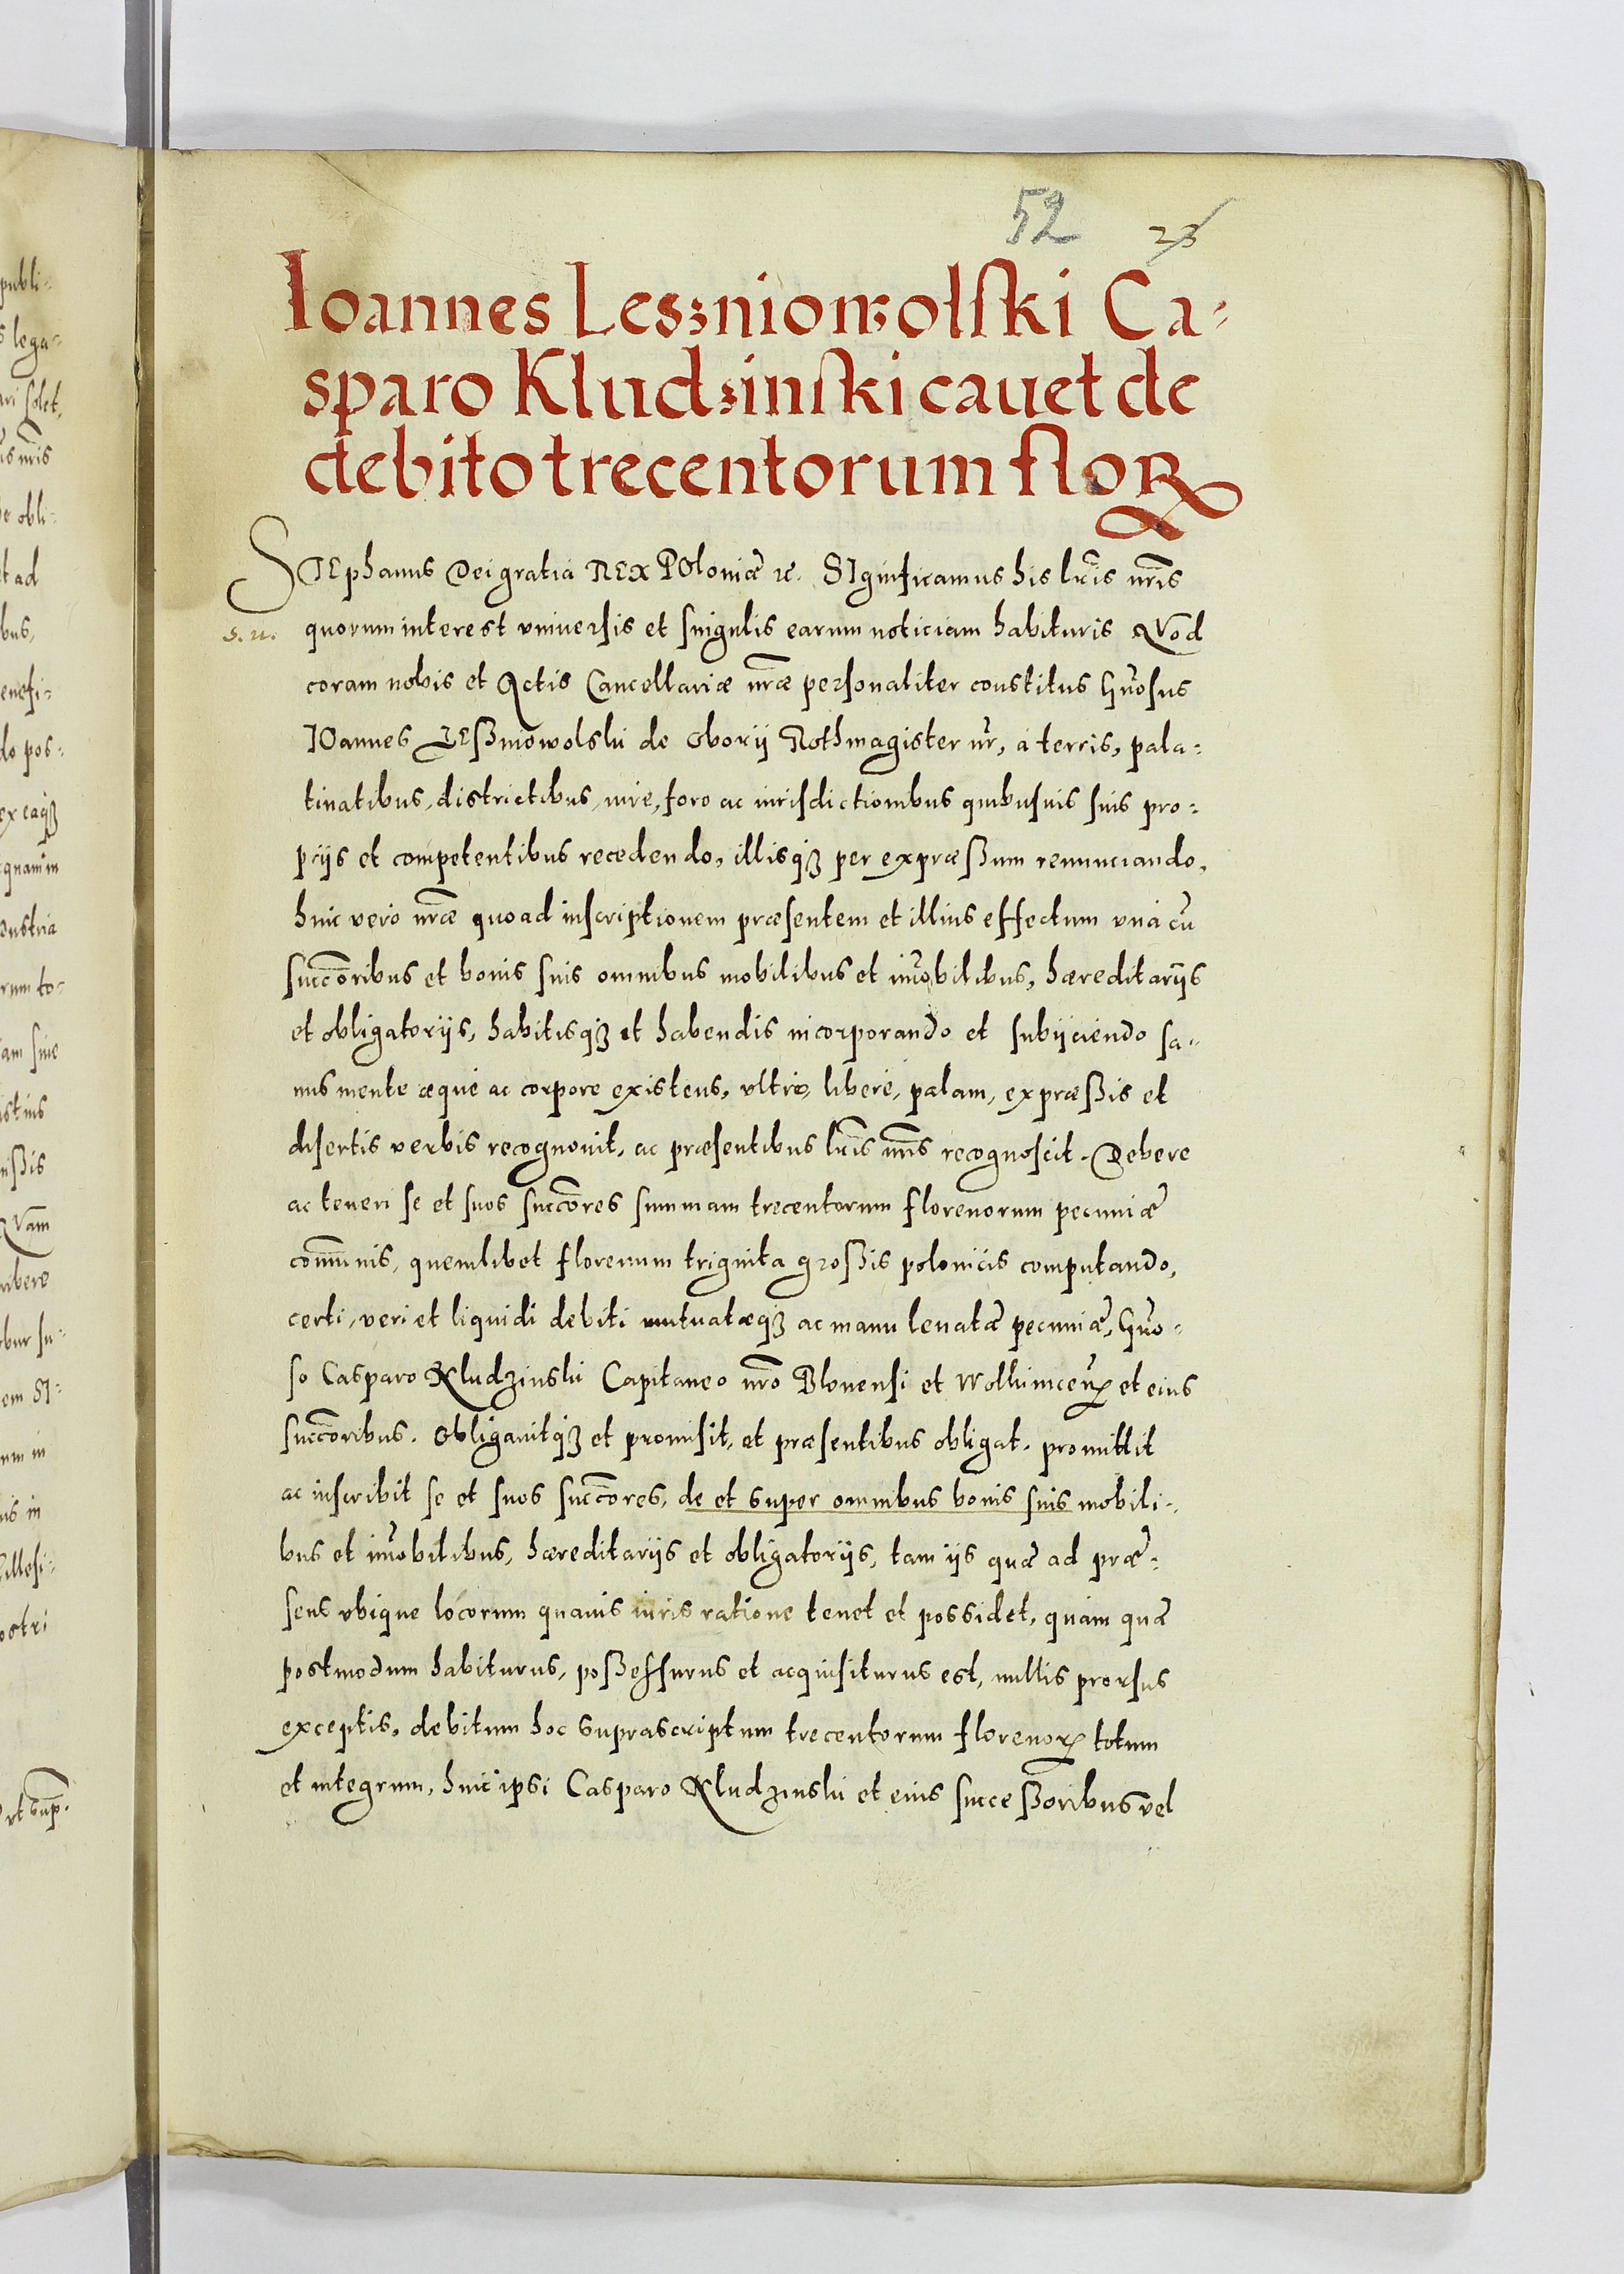 52 23
Ioannes Leszniowolski Ca-
sparo Kludzinski cauet de
debito trecentorum floꝝ
STEphanus Dei gratia REX POloniæ ꝛc. SIgnificamus his lr̃is nr̃is
s. n. quorum interest vniuersis et singulis earum noticiam habituris QVod
coram nobis et Actis Cancellariæ nr̃æ personaliter constitus Gñosus
IOannes LEßniowolski de Obory Rothmagister nr̃, à terris, pala-
tinatibus, districtibus, iure, foro ac iurisdictionibus quibusuis suis pro-
prijs et competentibus recedendo, illisqꝫ per expræßum renunciando,
huic vero nr̃æ quoad inscriptionem præsentem et illius effectum vnà cũ
succõribus et bonis suis omnibus mobilibus et im̃obilibus, hæreditarijs
et obligatorijs, habitisqꝫ et habendis incorporando et subijciendo sa-
nus mente æquè ac corpore existens, vltrò, liberè, palam, expræßis et
disertis verbis recognouit, ac præsentibus lr̃is nr̃is recognoscit. Debere
ac teneri se et suos succõres summam trecentorum florenorum pecuniæ
com̃unis, quemlibet florenum triginta großis polonicis computando,
certi, veri et liquidi debiti mutuatæqꝫ ac manu leuatæ pecuniæ, Gño-
so Casparo Kludzinski Capitaneo nr̃o Blonensi et et eius
succõribus. Obligauitqꝫ et promisit, et præsentibus obligat, promittit
ac inscribit se et suos succõres, de et super omnibus bonis suis mobili-
bus et im̃obilibus, hæreditarijs et obligatorijs, tam ijs quæ ad præ-
sens vbique locorum quauis iuris ratione tenet et possidet, quàm quæ
postmodum habiturus, poßessurus et acquisiturus est, nullis prorsus
exceptis, debitum hoc suprascriptum trecentorum florenoꝝ totum
et integrum, huic ipsi Casparo Kludzinski et eius succeßoribus vel